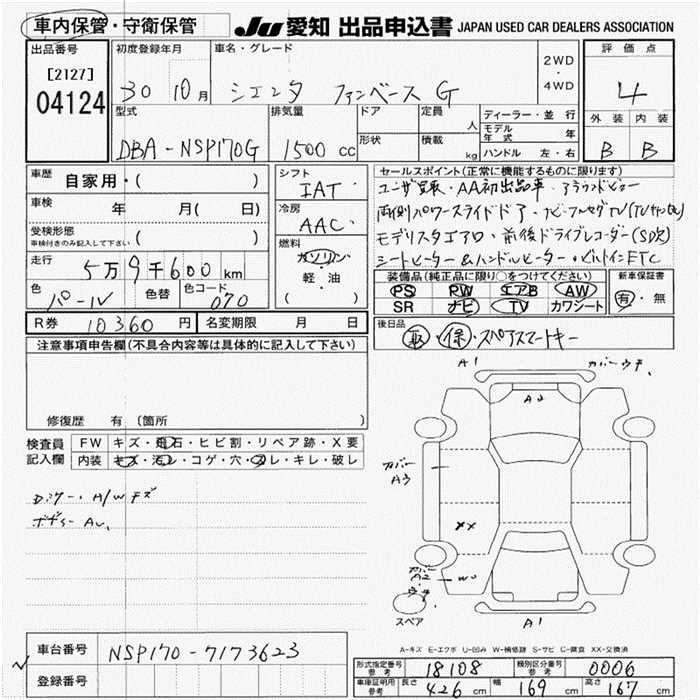 車内保管・守衛保管 JU 愛知 出品申込書 JAPAN USED CAR DEALERS ASSOCIATION
出品番号 初度登録年月 車名・グレード 2WD ・ 4WD 評価点
[2127] 30 10月 シエンタ ファンベース G 4
04124
型式 排気量 ドア 定員 人 ディーラー・並行 外装 内装
モデル年式 年
DBA-NSP170G 1500 cc 形状 積載 kg ハンドル 左・右 B B
車歴 自家用・( ) シフト セールスポイント(正常に機能するものに限ります)
IAT ユーザー買取・AA初出品車・アラウンドビュー
車検 年 月( 日) 冷房 両側パワースライドドア・ナビ・フルセグTV
AAC
受検形態 モデリスタエアロ・前後ドライブレコーダー(SD欠)
車検付きのみ記入して下さい ( ) 燃料
ガソリン シートヒーター&ハンドルヒーター・ビルトインETC
走行 5万9千600km 軽・油 装備品(純正品に限り○をつけてください) 新車保証書
( ) PS PW エアB AW 有・無
色 パール 色替 色コード 070 SR ナビ TV カワシート
R券 10360円 名変期限 月 日 後日品
取・保・スペアスマートキー
注意事項申告欄(不具合内容等は具体的に記入して下さい)
A1 カバーウチ.
A2
修復歴 有 〔箇所 〕
検査員 FW キズ・飛石・ヒビ割・リペア跡・X要
記入欄 内装 キズ・汚レ・コゲ・穴・スレ・キレ・破レ
カバー
A3
A/Wキズ
ボディー AU.
XX
カバー
A2 W
スペア A1
A-キズ E-エクボ U-凹み W-補修跡 S-サビ C-腐食 XX-交換済
車台番号 NSP170-7173623
形式指定番号 参考 18108 類別区分番号 参考 0006
登録番号 車庫証明用 参考 長さ 426 cm 幅 169 cm 高さ 167 cm